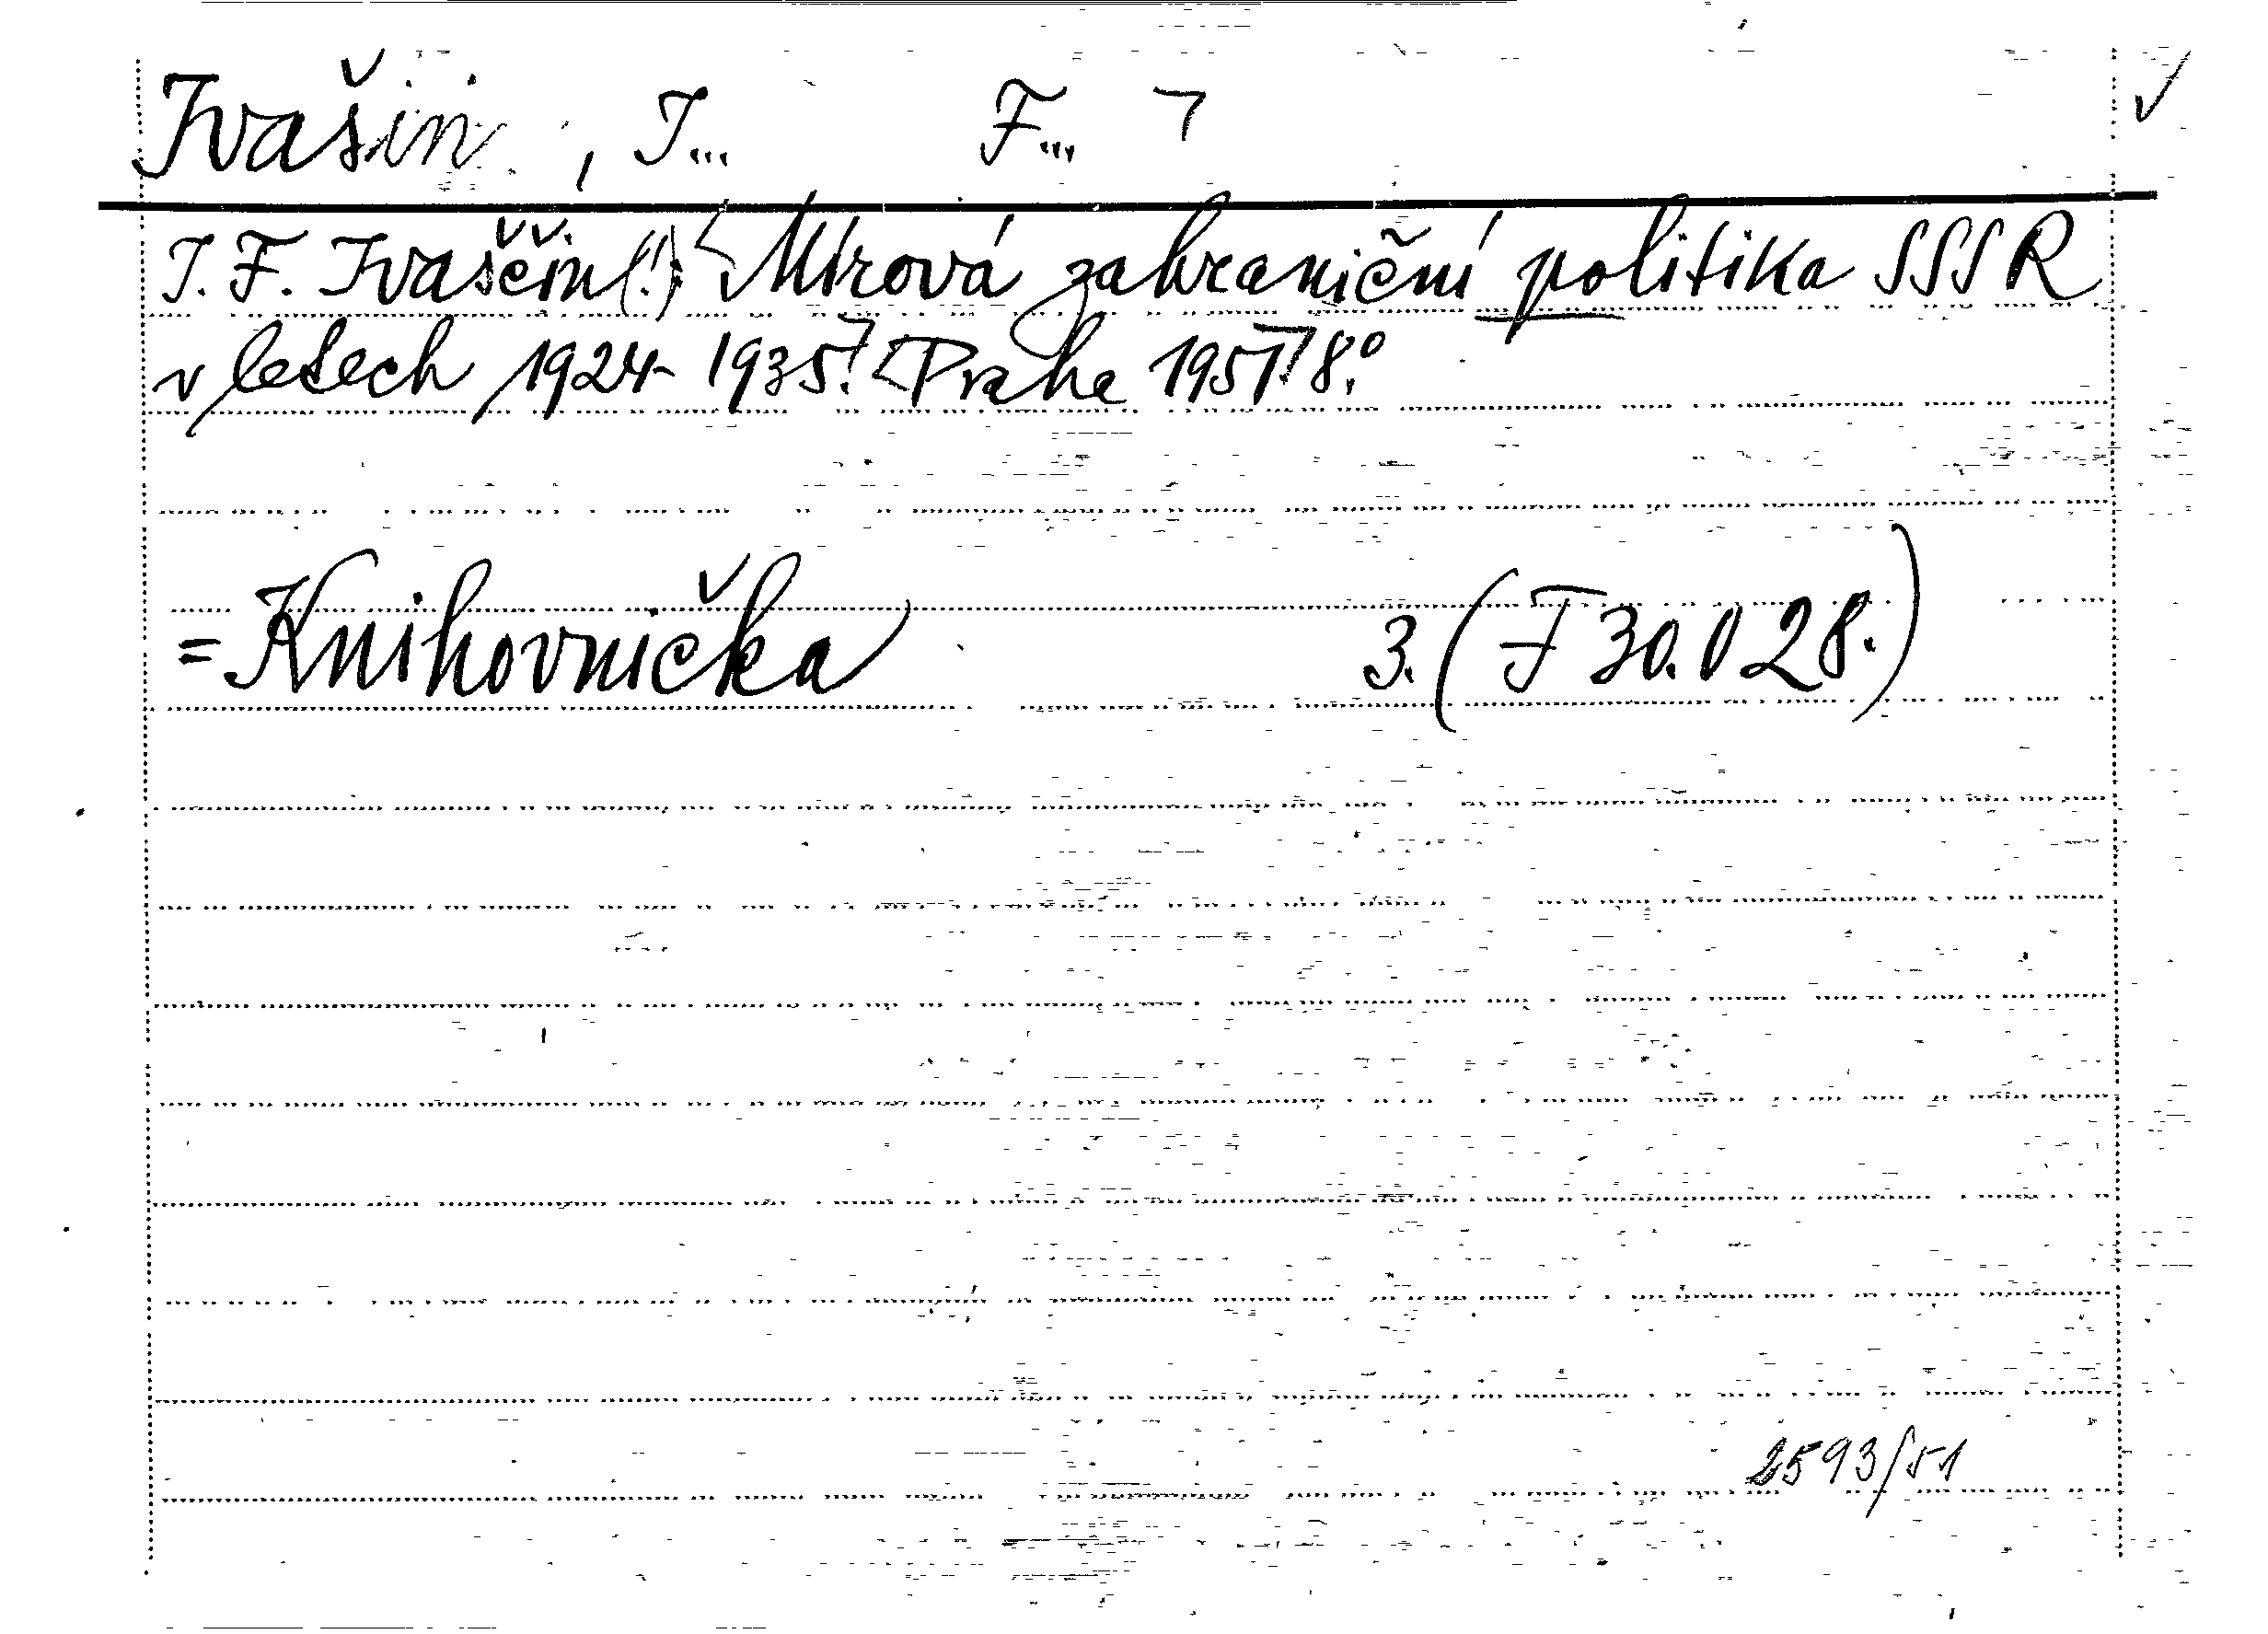 Ivašin, I... F... ┐ ✓
I. F. Ivaščin(!): Mírová zahraniční politika SSSR
v letech 1924-1935. Praha 1951 8°.
= Knihovnička 3. (F 30.028.)
2593/51